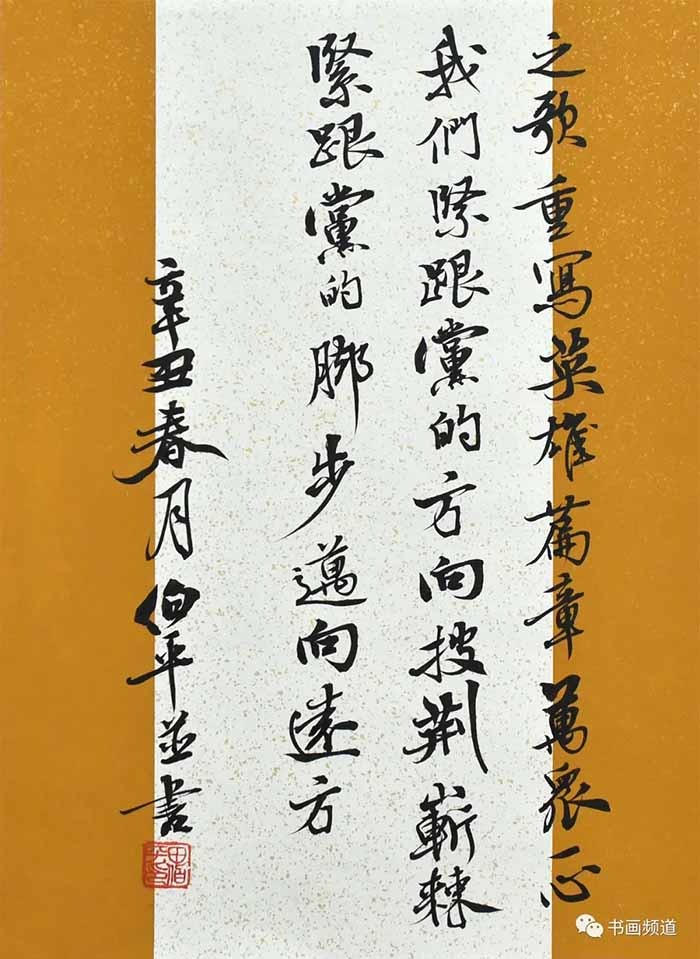 之歌重寫英雄篇章萬眾一心
我們緊跟黨的方向披荊嶄棘
緊跟黨的脚步邁向遠方
辛丑春月伯平並書
书画频道